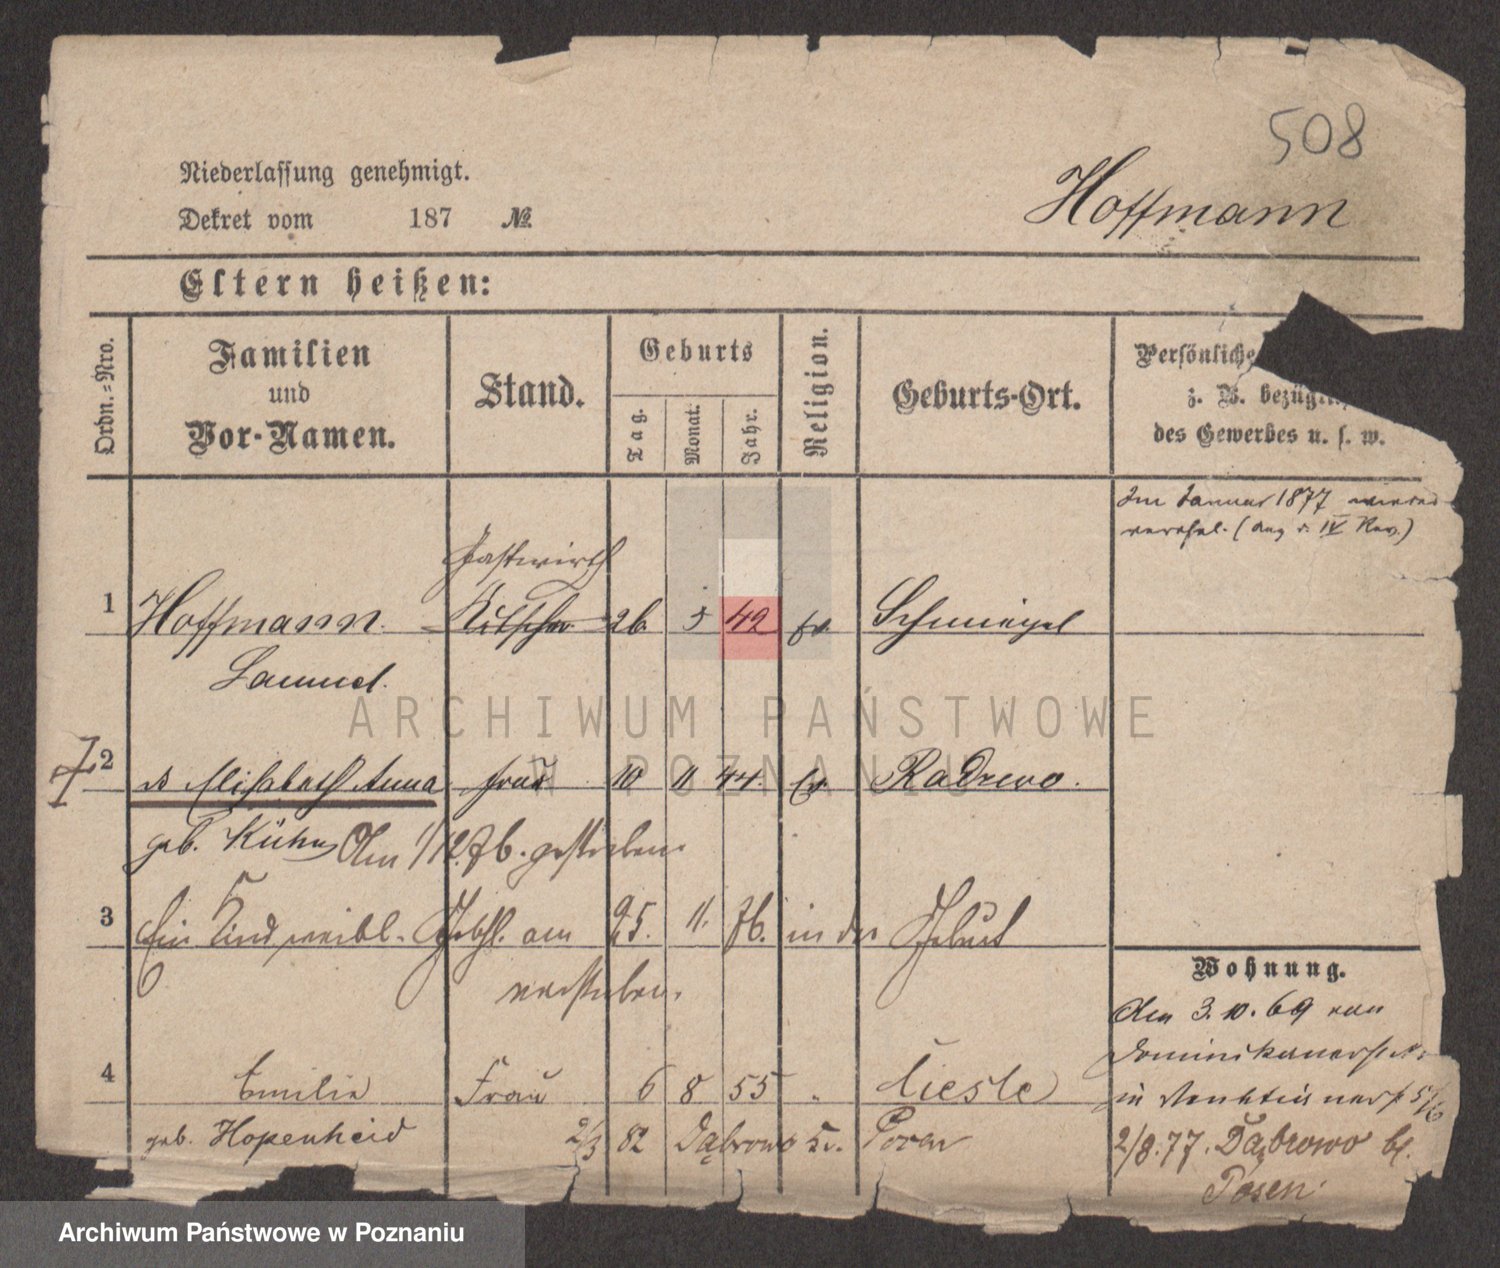 508
Niederlassung genehmigt.
Hoffmann
Dekret vom 187 №
Eltern heißen:
Ordn.-Nro.
Familien
und
Vor-Namen.
Stand.
Geburts
Tag.
Monat.
Jahr.
Religion.
Geburts-Ort.
Persönliche
z. B. bezügl
des Gewerbes u. s. w.
Im Januar 1877
IV Rev.)
Gastwirth
1 Hoffmann Kutscher 26 5 42 ev. Schmiegel
Samuel.
ARCHIWUM PAŃSTWOWE
W POZNANIU
2 Elisabeth Anna Frau 10 11 44. ev Radzewo.
geb. Kühn Am 1/12.76. gestorben.
3 Ein Kind weibl. Geschl. am 25. 11. 76. in der Geburt
verstorben.
Wohnung.
Am 3.10.69 von
Dominikanerstr.
in 5/6
4 Emilie Frau 6 8 55 Lieste
geb. Hopenheid 2/3 82 Dąbrowo Kr. Posen
2/8.77. Dąbrowo bei
Posen.
Archiwum Państwowe w Poznaniu